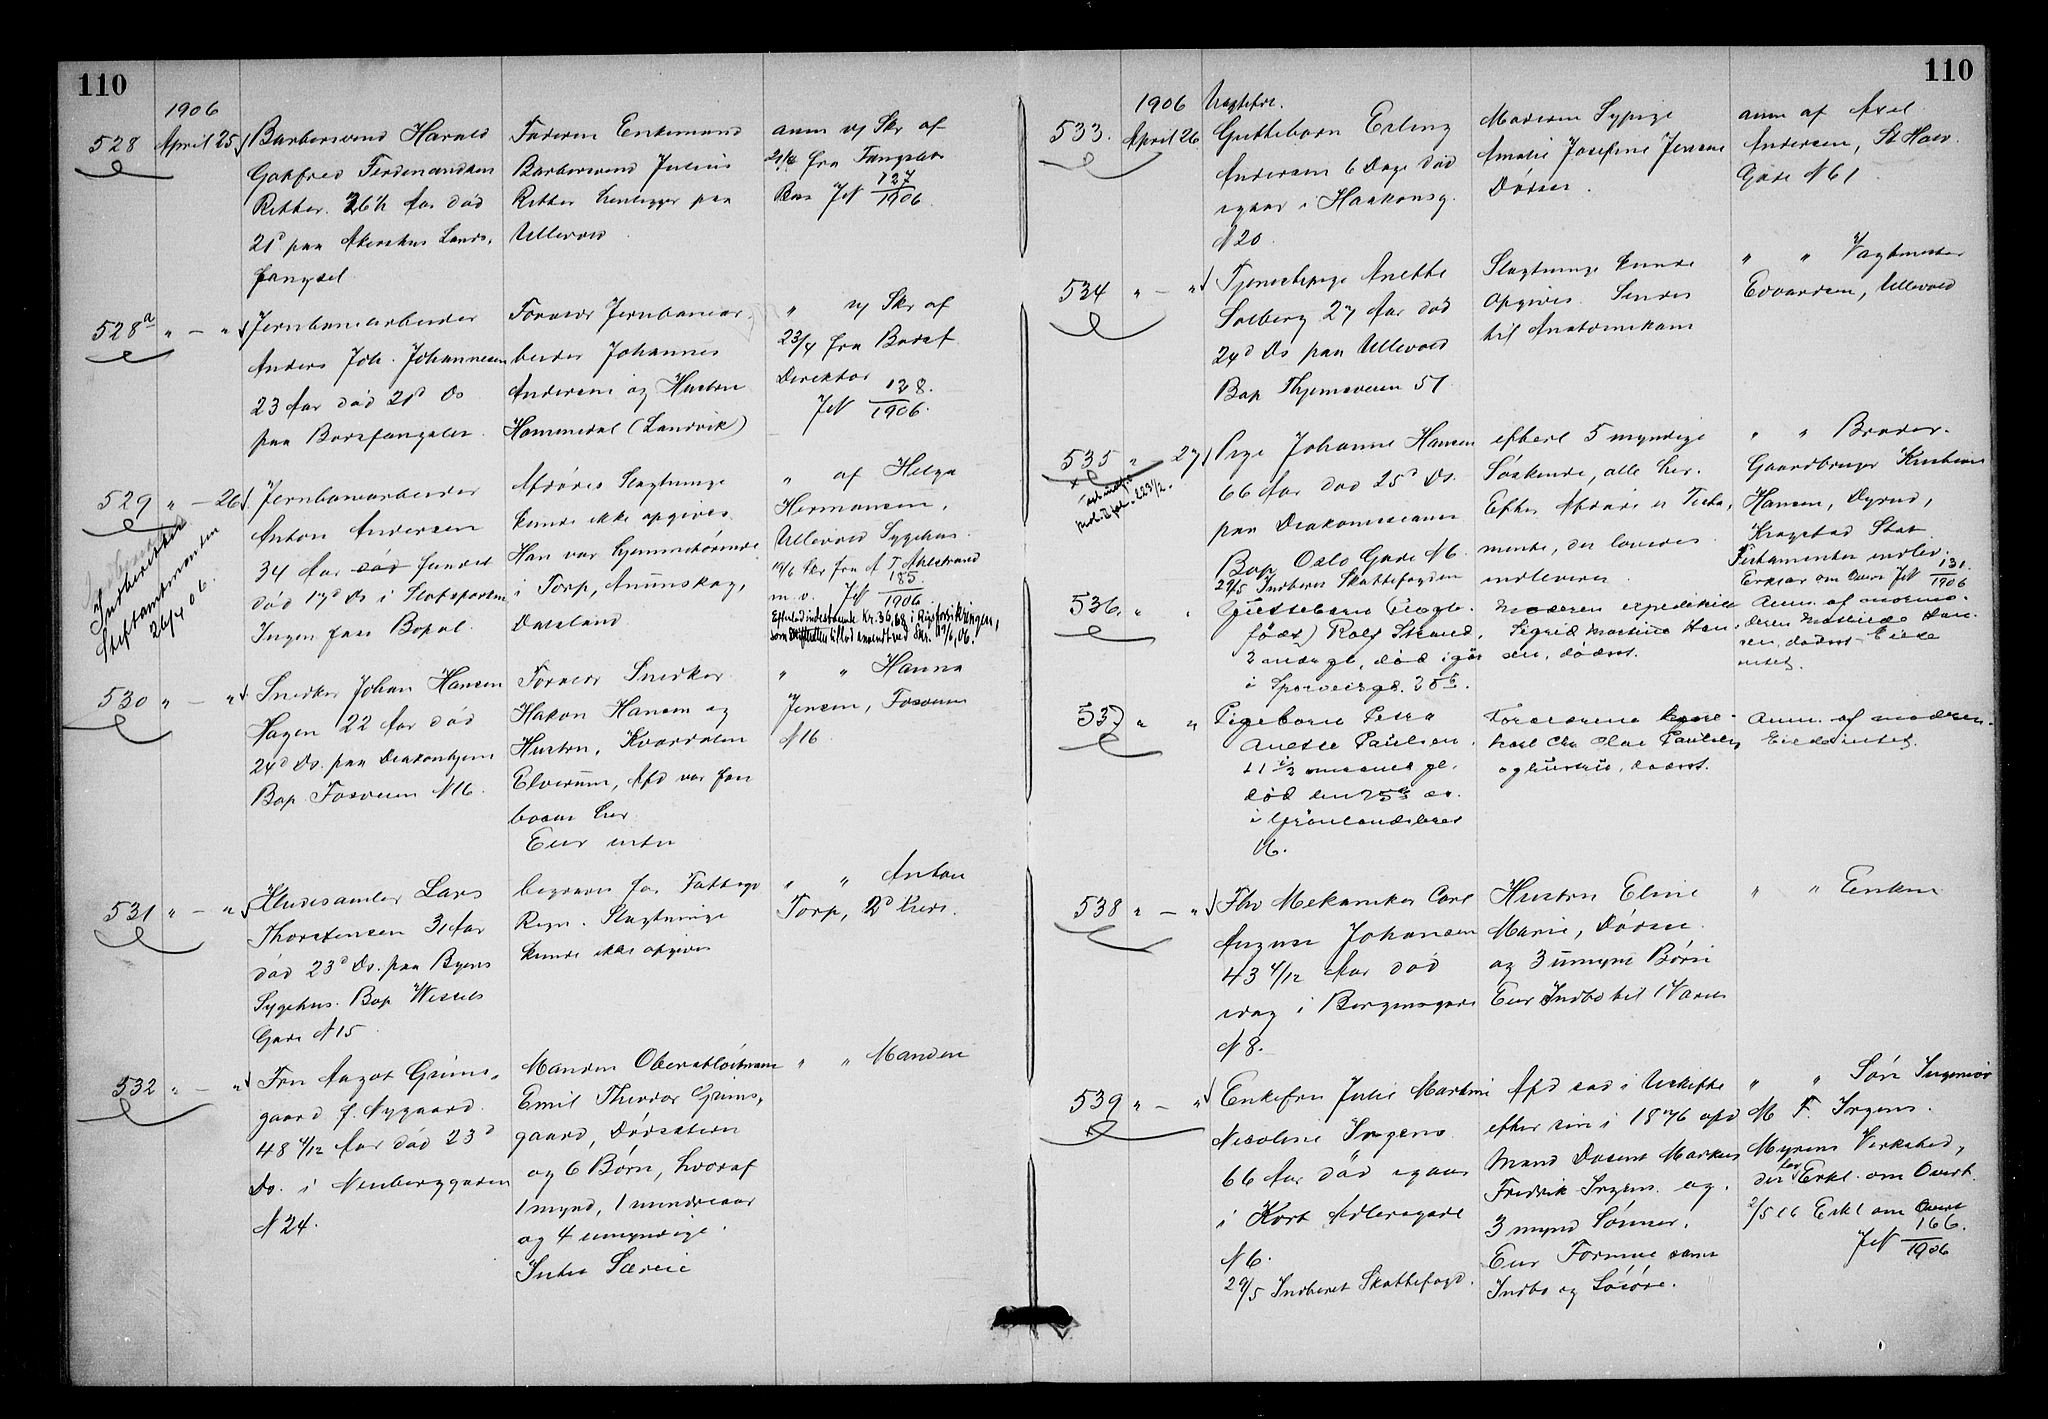 110
1906
528 April 25 Barbersvend Harald
Gotfred Ferdinandsen
Ritter. 26½ Aar død
21d paa Akershus Lands,
fængsel
Faderen Enkemand
Barbersvend Julius
Ritter henligger paa
Ullevold
anm v/ Skr af
21/4 fra Fængslets
JN 127/1906.
528a " — " Jernbanearbeider
Anders Joh. Johannesen
23 Aar død 21d Ds
paa Bodsfængslet.
Foræld Jernbanear,
beider Johannes
Andersen og Hustru
Hommedal (Landvik)
" v/ Skr af
23/4 fra Bodsf
Direktør
JN 128./1906.
529 " — 26 Jernbanearbeider
Anton Andersen
34 Aar død fundet
død 17d Ds i Slotsparken
Ingen fast Bopæl.
Indberettet
Stiftamtmanden
26/4 06.
Afdødes Slægtninge
kunde ikke opgives
Han var hjemmehørende
i Torp, Ånimskog,
Dalsland.
" af Helga
Hermansen,
Ullevold Sygehus.
19/6 Skr fra A T Ahlstrand
m. v. JN 185/1906.
Efterlod indestaaende Kr. 36,68 i Rigsforsikringen,
som Skifteretten tillod anvendt ved Skr. 19/6, 06.
530 " — " Snedker Johan Hansen
Hagen 22 Aar død
24d Ds. paa Diakonhjem
Bop Fosveien N 16.
Foræld Snedker
Hakon Hansen og
Hustru, Kvardalen
Elverum, Afd var for
boende her
Eier intet
" " Hanna
Jensen, Fosveien
N 16
531 " — " Kludesamler Lars
Thorstensen 31 Aar
død 23d Ds. paa Byens
Sygehus. Bop Wessels
Gade N 15
begraves for Fattigv
Regn. Slægtninge
kunde ikke opgives
" " Anton
Torp, 2d Kreds.
532 " — " Fru Aagot Grims,
gaard f. Nygaard
48 4/12 Aar død 23d
Ds. i Neuberggaden
N 24.
Manden Oberstløitnant
Emil Theodor Grims,
gaard, Dødsstedn
og 6 Børn, hvoraf
1 mynd, 1 mindreaar
og 4 umyndige
Intet Særeie
" " Manden
110
1906 Uægtefød.
533. April 26 Guttebarn Erling
Andersen 6 Dage død
igaar i Haakonsg.
N 20
Moderen Sypige
Amalie Josefine Jensen
Dødsst.
anm af Axel
Andersen, St Halv
Gade N 61
534 " — " Tjenestepige Anette
Solberg 27 Aar død
24d Ds paa Ullevold
Bop Thjemsveien 51
Slægtninge kunde
opgives. Sendes
til Anatomikam
" " Vagtmester
Edvardsen, Ullevold
535 " 27 Pige Johanne Hansen
66 Aar død 25d Ds.
paa Diakonisseanst
Bop Oslo Gade N 6
29/5 Indberet Skattefogden
efterl 5 myndige
Søskende, alle her.
Efter Afdøde er Testa,
mente, der lovedes
indleveret
" " Broder
Gaardbruger Kristian
Hansen, Dyrud,
Kragstad Stat
Testamentet indlev.
Erklær om Overt JN 131./1906
536. " " Guttebarn (Uægte
født) Rolf Strand,
2 mdr gl., død igår
i Sporveisgd. 25 B.
Moderen expeditrice
Sigrid Martine Han,
sen, dødsst.
Anm. af mormo-
deren Mathilde Han-
sen, dødsst. Eiede
intet.
537 " " Pigebarn Petra
Anette Paulsen,
11 1/2 maaned gl.
død den 25de ds.
i Grønlandsleret
16.
Forældrene
Olaf Paulsen
og hustru, dødsst.
Anm. af moderen.
Eiede intet.
538 " — " Fhv Mekaniker Carl
August Johansen
43 4/12 Aar død
idag i Bergensgade
N 8.
Hustru Eline
Marie, Dødsst.
og 3 umynd Børn
Eier Indbo til
" " Enken
539 " — " Enkefru Julie Martine
Nicoline Irgens
66 Aar død igaar
i Kort Adlersgade
N 6.
29/5 Indberet Skattefogd.
Afd sad i Uskifte
efter sin i 1876 afd
Mand Docent Markus
Fredrik Irgens. og
3 mynd Sønner.
Eier Formue samt
Indbo og Løsøre.
" " Søn Ingeniør
M F Irgens.
Myrens Verksted,
der lev Erkl. om Overt.
2/5 06 Erkl om Overt
JN 166./1906